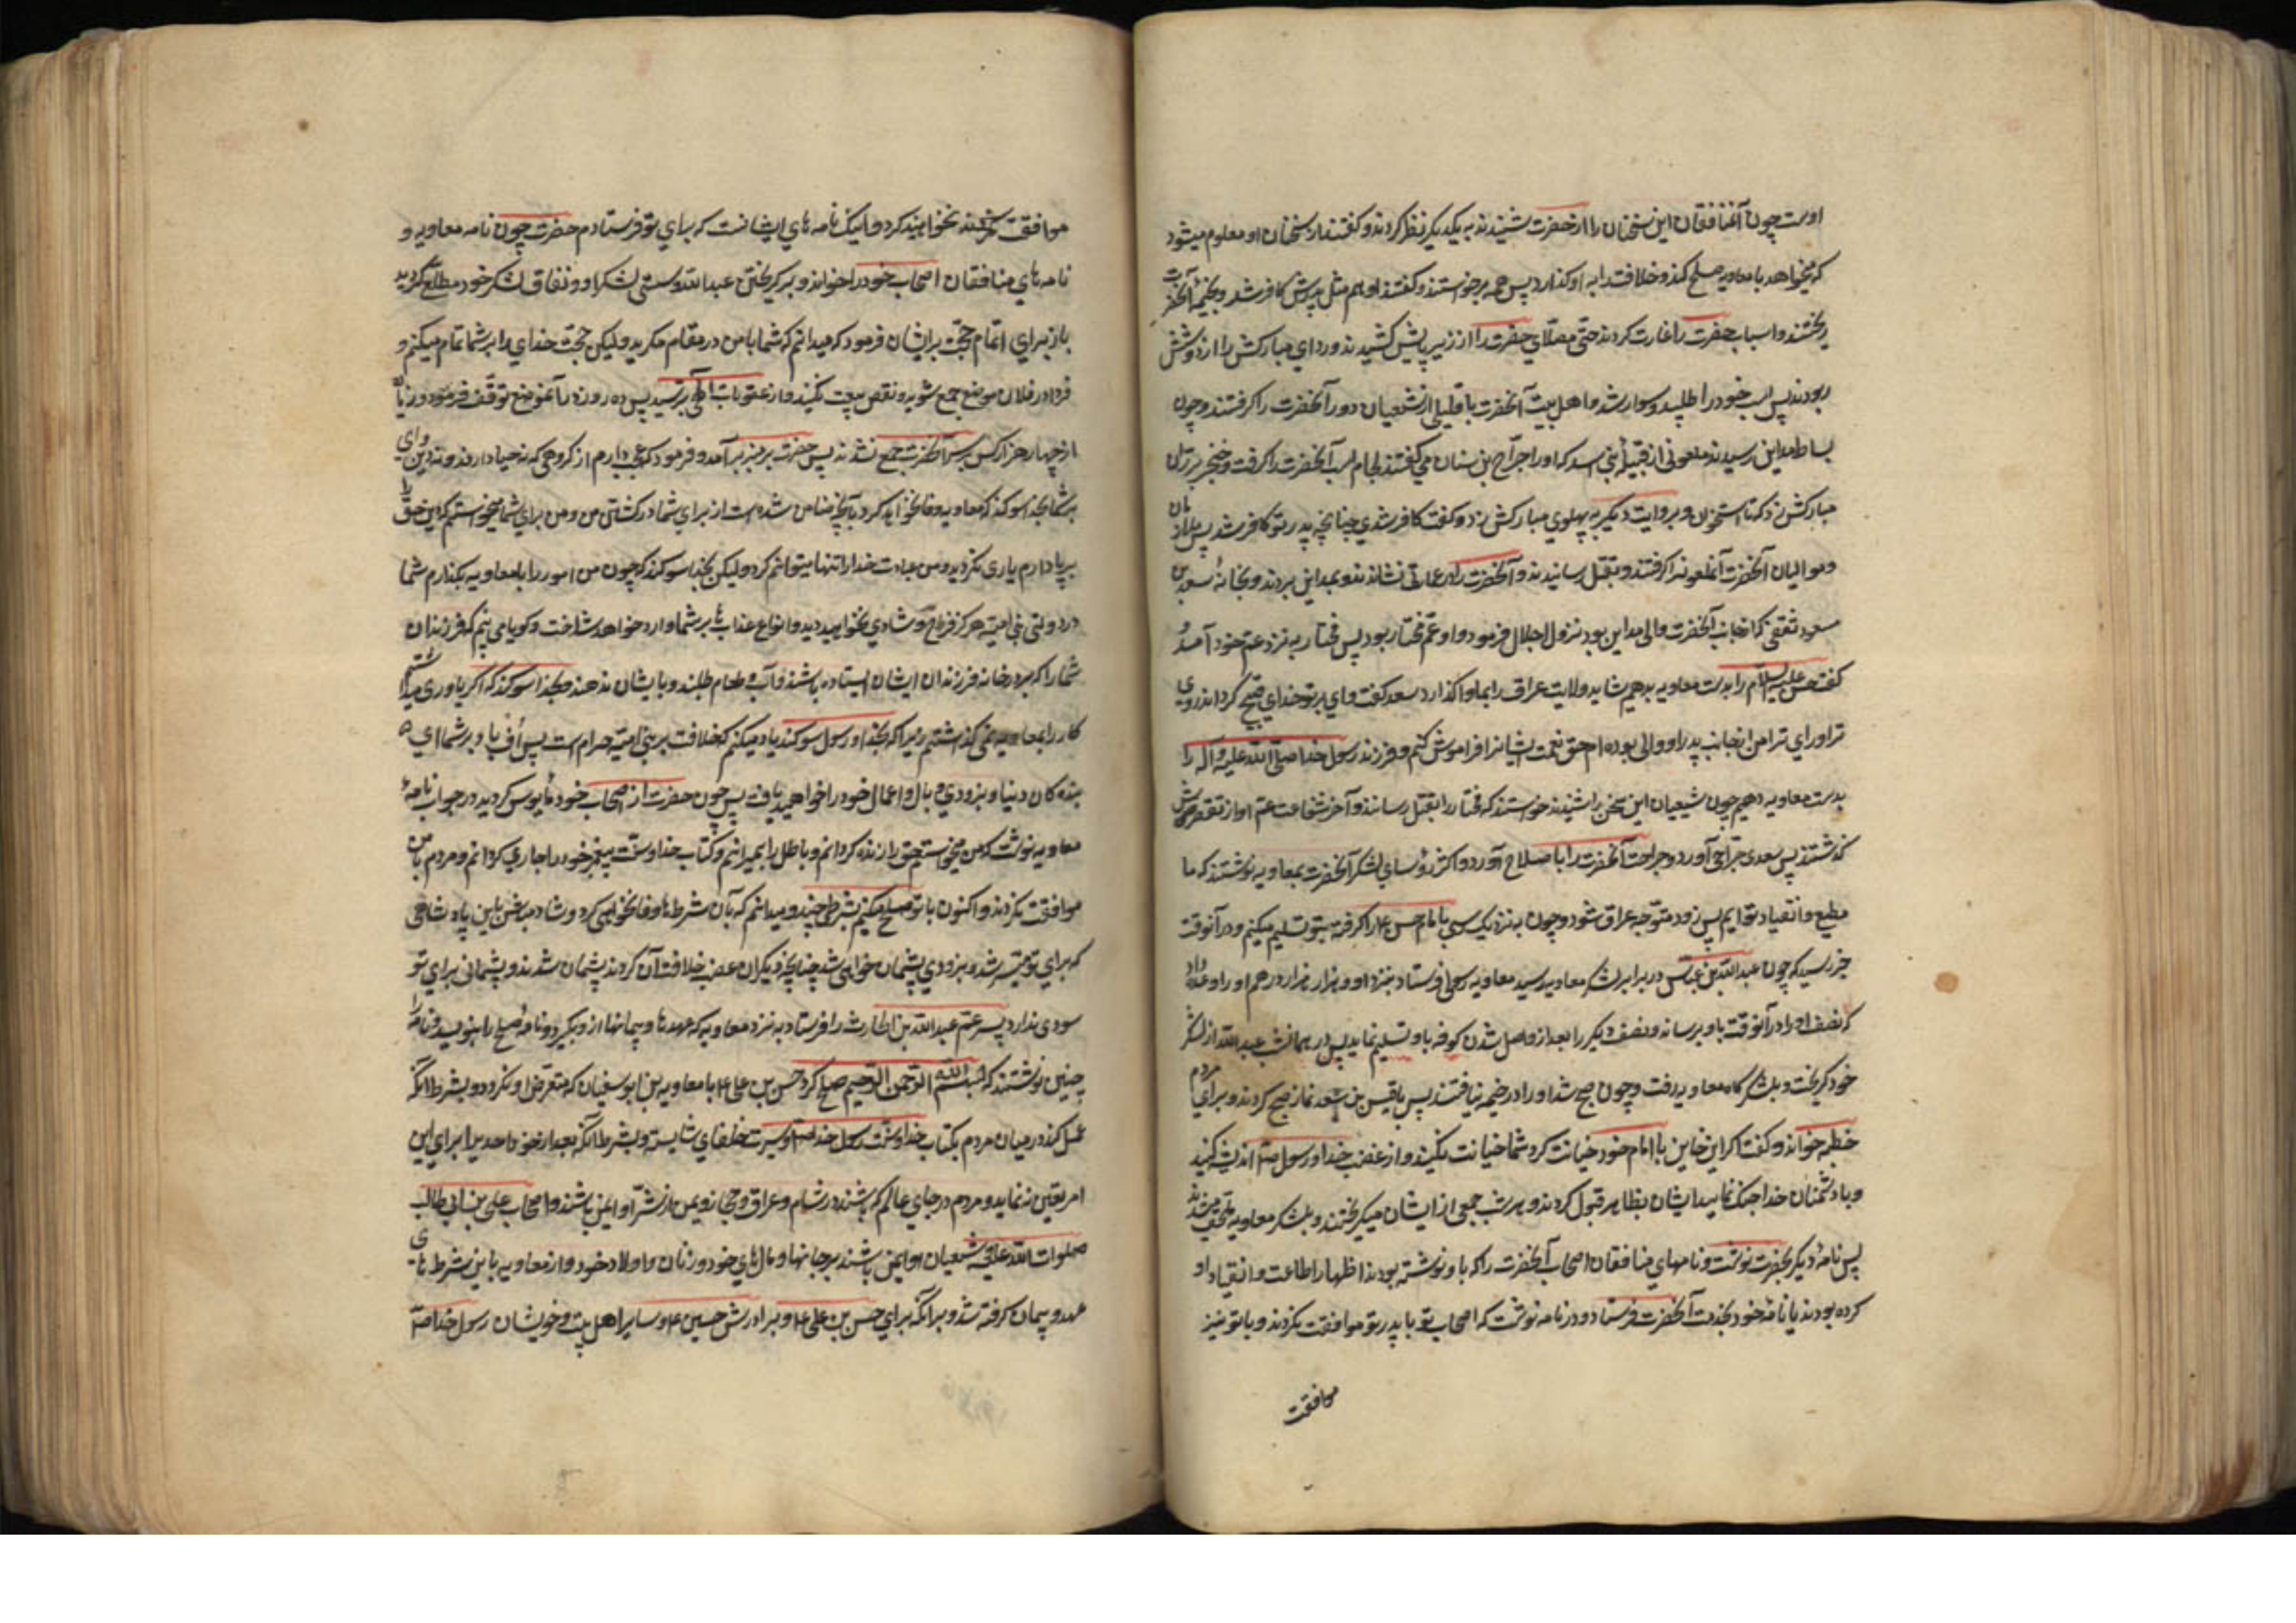 اوست چون آن منافقان این سخنان را از حضرت شنیدند به یکدیگر نظر کردند و گفتند از سخنان او معلوم میشود
که میخواهد با معاویه صلح کند و خلافت را به او گذارد پس همه برخواستند و گفتند او هم مثل پدرش کافر شد و بخیمهٔ آنحضرت
ریختند و اسباب حضرت را غارت کردند حتّی مصلّای حضرت را از زیر پایش کشیدند و ردای مبارکش را از دوشش
ربودند پس اسب خود را طلبید و سوار شد و اهل بیت آنحضرت با قلیلی از شیعیان دور آنحضرت را گرفتند و چون
بساباط مداین رسیدند ملعونی از قبیلهٔ بنی اسد که او را جرّاح بن سنان می گفتند لجام اسب آنحضرت را گرفت و خنجر بر ران
مبارکش زد که تا استخوان و بروایت دیگر به پهلوی مبارکش زد و گفت کافر شدی چنانچه پدر تو کافر شد پس ملازمان
و موالیان آنحضرت آنملعونرا گرفتند و بقتل رسانیدند و آنحضرت را در عماری نشاندند و بمداین بردند و بخانهٔ سعد بن
مسعود ثقفی که از جانب آنحضرت والی مداین بود نزول اجلال فرمود و او عمّ مختار بود پس مختار به نزد عم خود آمد و
گفت حسن علیه السلام را بدست معاویه بدهیم شاید ولایت عراق را بما واگذارد سعد گفت وای بر تو خدای قبیح گرداند روی
ترا و رای ترا من از جانب پدر او والی بوده ام حق نعمت ایشانرا فراموش کنم و فرزند رسول خدا صلّی الله علیه وآله را
بدست معاویه دهیم چون شیعیان این سخن را شنیدند خواستند که مختار را بقتل رسانند و آخر شفاعت عمّ او از تقصیرش
گذشتند پس سعد جراحی آورد و جراحت آنحضرت را باصلاح آورد و اکثر رؤسای لشکر آنحضرت بمعاویه نوشتند که ما
مطیع و انقیاد توایم پس زود متوجه عراق شو و چون به نزدیک رسی با امام حسن ع را گرفته بتو تسلیم میکنیم و در آنوقت
خبر رسید که چون عبدالله بن عباس در برابر لشکر معاویه رسید معاویه رسولی فرستاد بنزد او و هزار هزار درهم او را وعده داد
که نصف او را در آنوقت باو برساند و نصف دیگر را بعد از واصل شدن کوفه باو تسلیم نماید پس در همانشب عبدالله از لشکر
خود گریخت و بلشکرگاه معاویه رفت و چون صبح شد او را در خیمه نیافتند پس با قیس بن سعد نماز صبح کردند و برای مردم
خطبه خواند و گفت اگر این خاین با امام خود خیانت کرد شما خیانت مکنید و از غضب خدا و رسول ص اندیشه کنید
و با دشمنان خدا جنگ نمایید ایشان بظاهر قبول کردند و هر شب جمعی از ایشان میگریختند و بلشکر معاویه ملحق میشدند
پس نامهٔ دیگر بحضرت نوشت و نامهای منافقان اصحاب آنحضرت را که باو نوشته بودند اظهار اطاعت و انقیاد او
کرده بودند با نامهٔ خود بخدمت آنحضرت فرستاد و در نامه نوشت که اصحاب تو با پدر تو موافقت نکردند و با تو نیز
موافقت
موافقت نخواهند کرد و اینک نامه های ایشانست که برای تو فرستادم حضرت چون نامه معاویه و
نامه های منافقان اصحاب خود را خواند و بر گریختن عبدالله و سستی لشکر او و نفاق لشکر خود مطلع گردید
باز برای اتمام حجّت بر ایشان فرمود که میدانم که شما با من در مقام مکرید ولیکن حجّت خدای را بر شما تمام میکنم و
فردا در فلان موضع جمع شوید و نقض بیعت مکنید و از عقوبات الهی بترسید پس ده روز در آنموضع توقّف فرمود و زیاده
از چهار هزار کس بر سر آنحضرت جمع نشدند پس حضرت بر منبر برآمد و فرمود که عجب دارم از گروهی که نه حیا دارند و نه دین وای
بر شما بخدا سوگند که معاویه وفا نخواهد کرد بآنچه ضامن شده است از برای شما در کشتن من و من برای شما میخواستم که دین حقّ را
برپا دارم یاری نکردید و من عبادت خدا را تنها میتوانم کرد ولیکن بخدا سوگند که چون من امور را بمعاویه بگذارم شما
در دولت بنی امیّه هرگز فرح و شادی نخواهید دید و انواع عذاب ها بر شما وارد خواهد ساخت و گویا می بینم که فرزندان
شما را که بر در خانه فرزندان ایشان ایستاده باشند و آب و طعام طلبند و بایشان ندهند و بخدا سوگند که اگر یاوری میداشتم
کار را بمعاویه نمی گذاشتم زیرا که بخدا و رسول سوگند یاد میکنم که خلافت بر بنی امیّه حرام است پس اُف باد بر شما ای
بنده گان دنیا و بزودی وبال و اعمال خود را خواهید یافت پس چون حضرت از اصحاب خود مأیوس گردید در جواب نامهٔ
معاویه نوشت که من میخواستم حق را زنده گردانم و باطل را بمیرانم و کتاب خدا و سنّت پیغمبر خود را جاری گردانم و مردم با من
موافقت نکردند و اکنون با تو صلح میکنم بشرطی چند و میدانم که بآن شرطها وفا نخواهی کرد و شاد مباش باین پادشاهی
که برای تو میسّر شد و بزودی پشیمان خواهی شد چنانچه دیگران غصب خلافت آن کردند پشیمان شدند و پشیمانی برای تو
سودی ندارد پسر عم عبدالله بن الحارث را فرستاد به نزد معاویه که عهدها و پیمانها از او بگیرد و نامهٔ صلح را بنویسد و نامه را
چنین نوشتند که بسم الله الرحمن الرحیم صلح کرد حسن بن علی ع با معاویه بن ابوسفیان که متعرّض او نگردد و بشرط آنکه
عمل کند در میان مردم بکتاب خدا و سنّت رسول خدا ص و سیرت خلفای شایسته و بشرط آنکه بعد از خود احدی را برای این
امر تعیین ننماید و مردم در جای عالم که باشند در شام و عراق و حجاز و یمن از شرّ او ایمن باشند و اصحاب علی بن ابی طالب
صلوات الله علیه و شیعیان او ایمن باشند بر جانها و مال های خود و زنان و اولاد خود و از معاویه باین شرط های
عهد و پیمان گرفته شد و بر آنکه برای حسن بن علی ع و برادرش حسین ع و سایر اهل بیت و خویشان رسول خدا ص